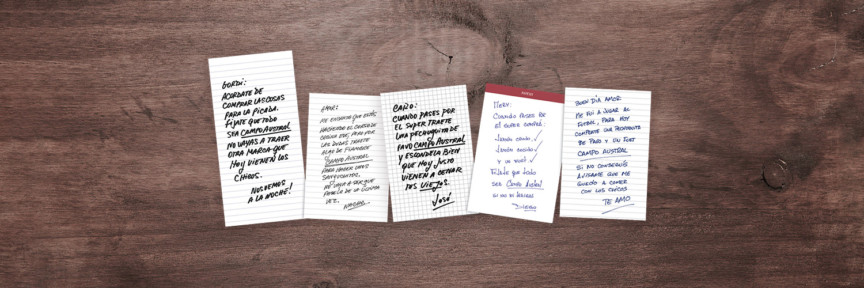 GORDI:
ACORDATE DE
COMPRAR LAS COSAS
PARA LA PICADA.
FIJATE QUE TODO
SEA CAMPO AUSTRAL
NO VAYAS A TRAER
OTRA MARCA QUE
HOY VIENEN LOS
CHICOS.
NOS VEMOS
A LA NOCHE!
AMOR:
CAMPO AUSTRAL
PARA HACER UNOS
VEZ.
CARO:
CUANDO PASES POR
EL SUPER TRAETE
UNA PECHUGUITA DE
PAVO CAMPO AUSTRAL
Y ESCONDELA BIEN
QUE HOY JUSTO
VIENEN A CENAR
TUS VIEJOS!
JOSÉ
Mery:
Cuando pases por
el super compra:
Jamón crudo, ✓
Jamón cocido ✓
y un fuet ✓
Fijate que todo
sea Campo Austral
BUEN DIA AMOR
ME FUI A JUGAR AL
FUTBOL, PARA HOY
COMPRATE UNA
DE PAVO Y UN FUET
CAMPO AUSTRAL
SI NO CONSEGUÍS
AVISAME QUE ME
QUEDO A COMER
CON LOS CHICOS
TE AMO